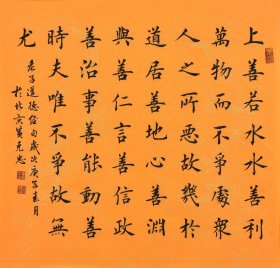 上善若水水善利
萬物而不爭處眾
人之所惡故幾於
道居善地心善淵
與善仁言善信政
善治事善能動善
時夫唯不爭故無
尤
老子道德經句歲次庚子春月
於北京黃克忠